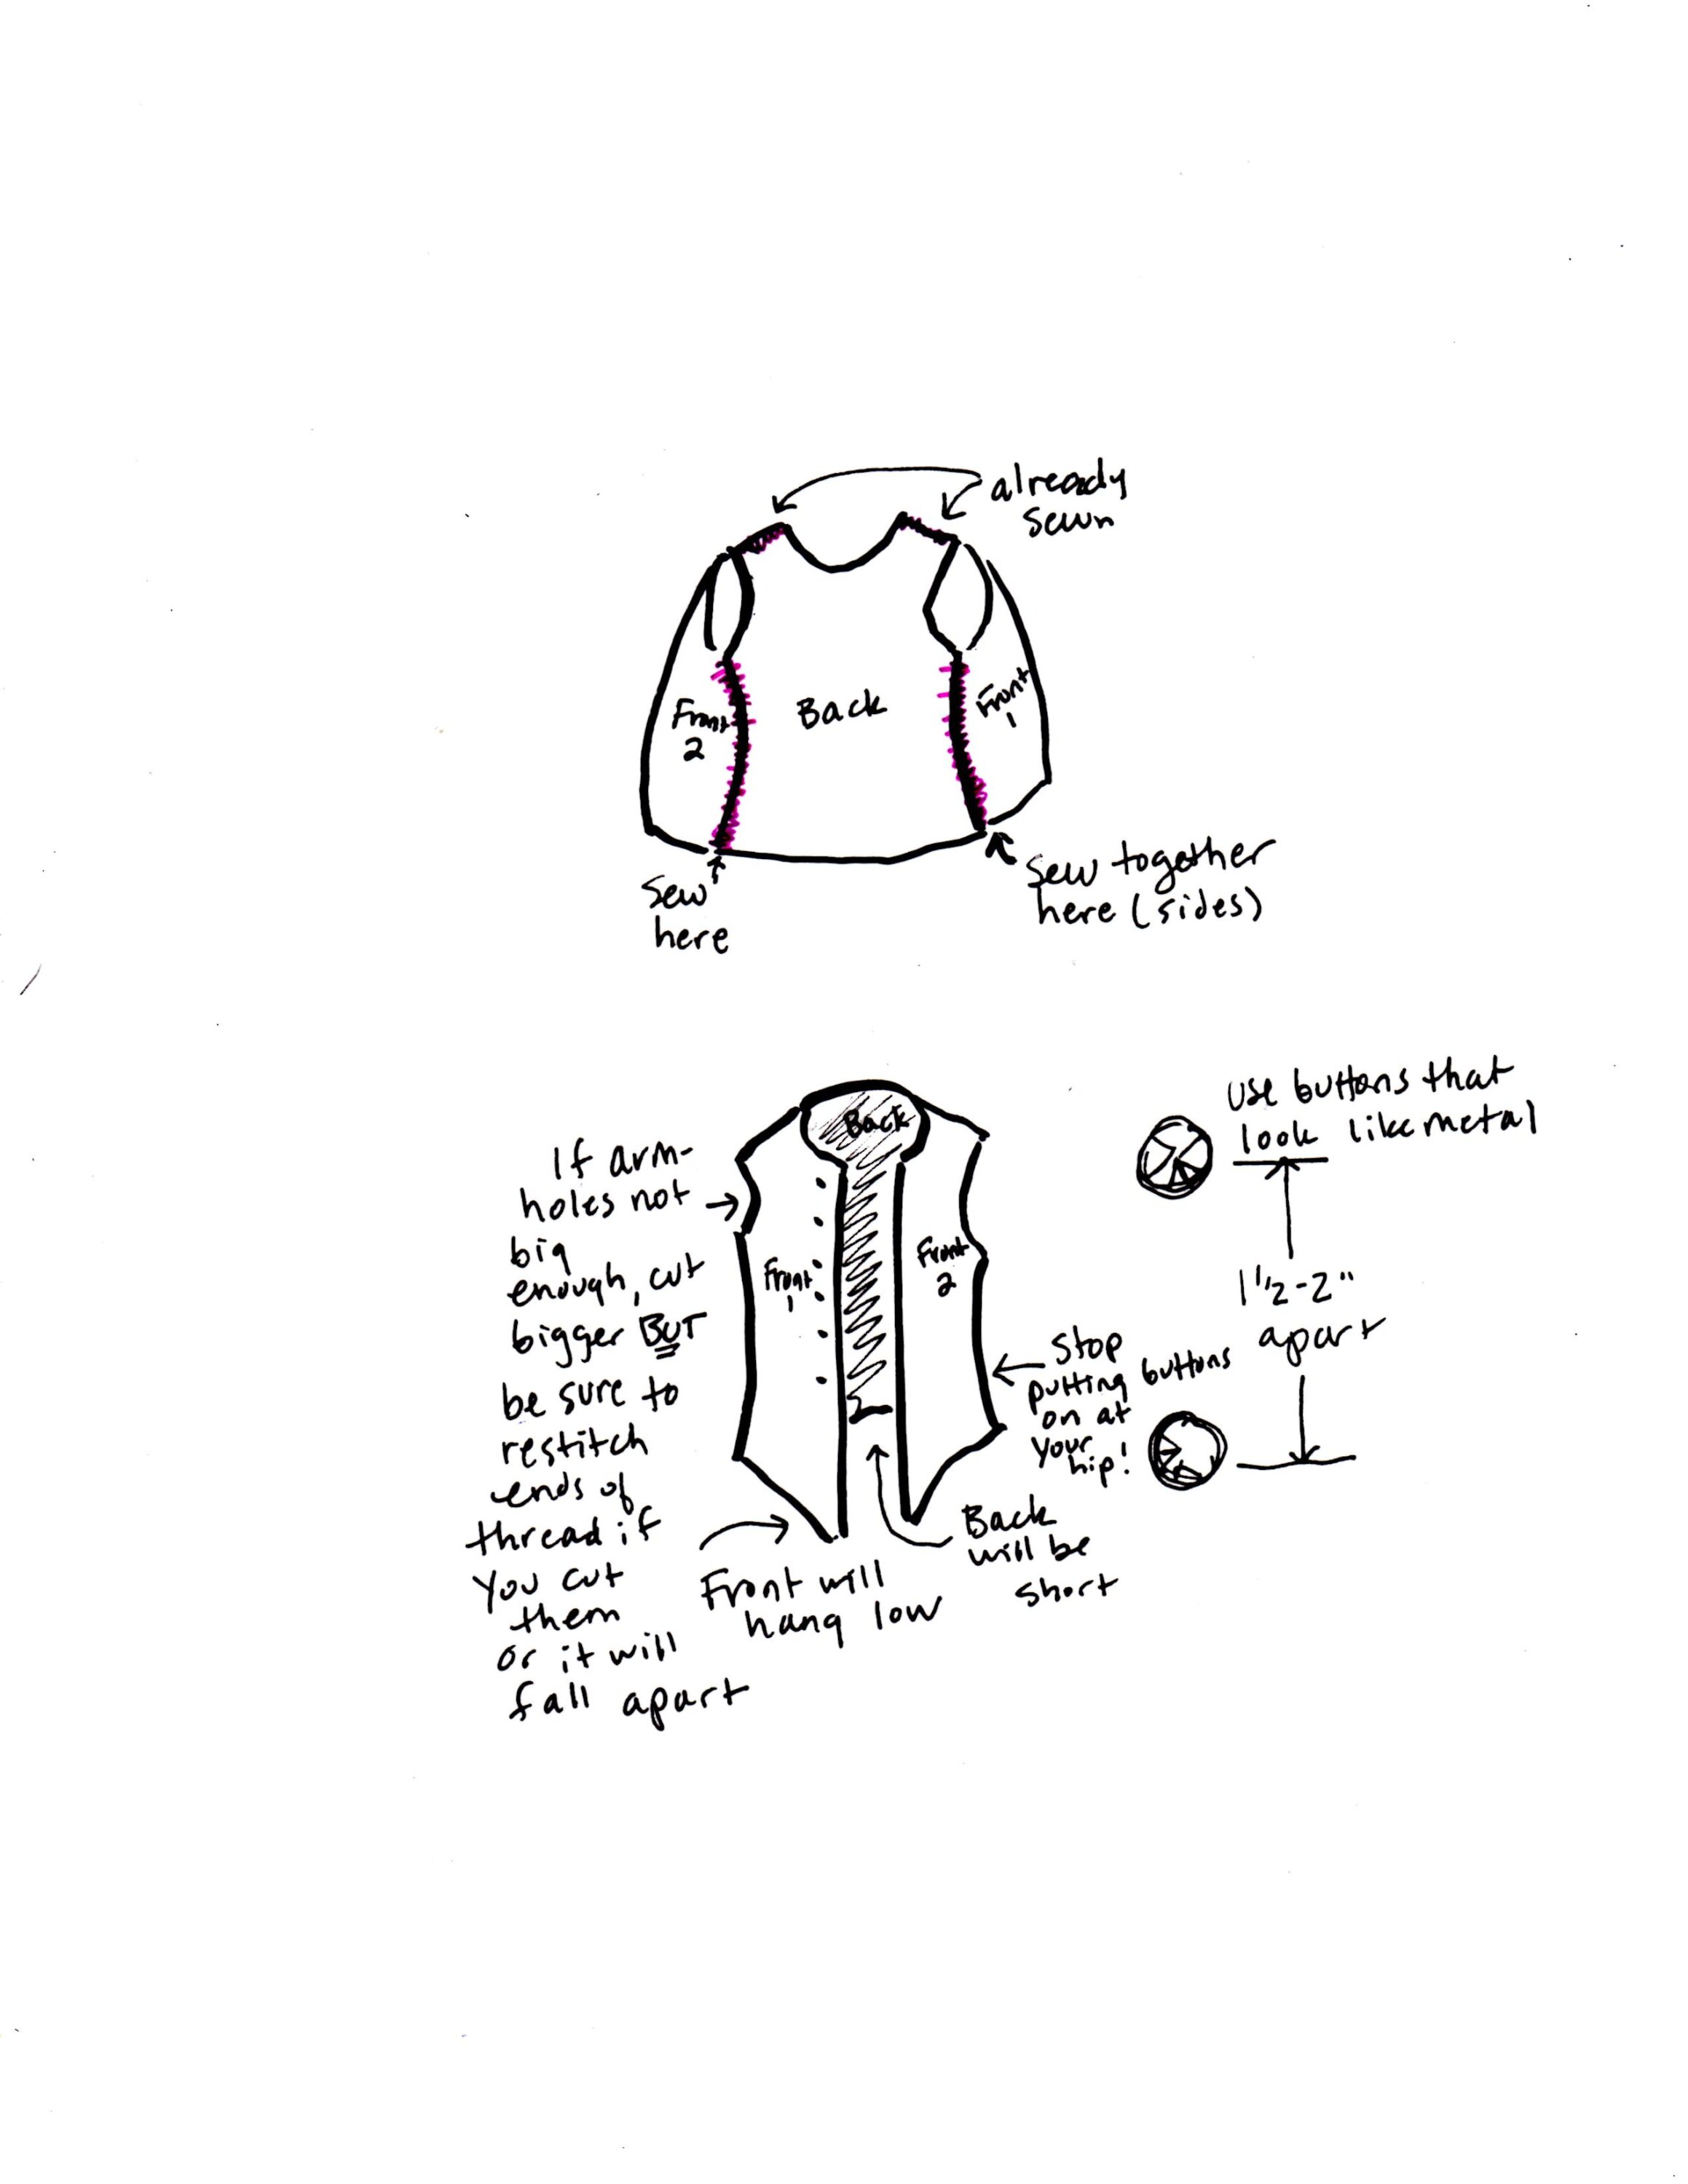 already
sewn
Front
2
Back
Front
1
sew
here
sew together
here (sides)
Back
Front
1
Front
2
If arm-
holes not
big
enough, cut
bigger BUT
be sure to
restitch
ends of
thread if
you cut
them
or it will
fall apart
Front will
hang low
Back
will be
short
Stop
putting buttons
on at
your
hip!
use buttons that
look like metal
1 1/2 - 2"
apart